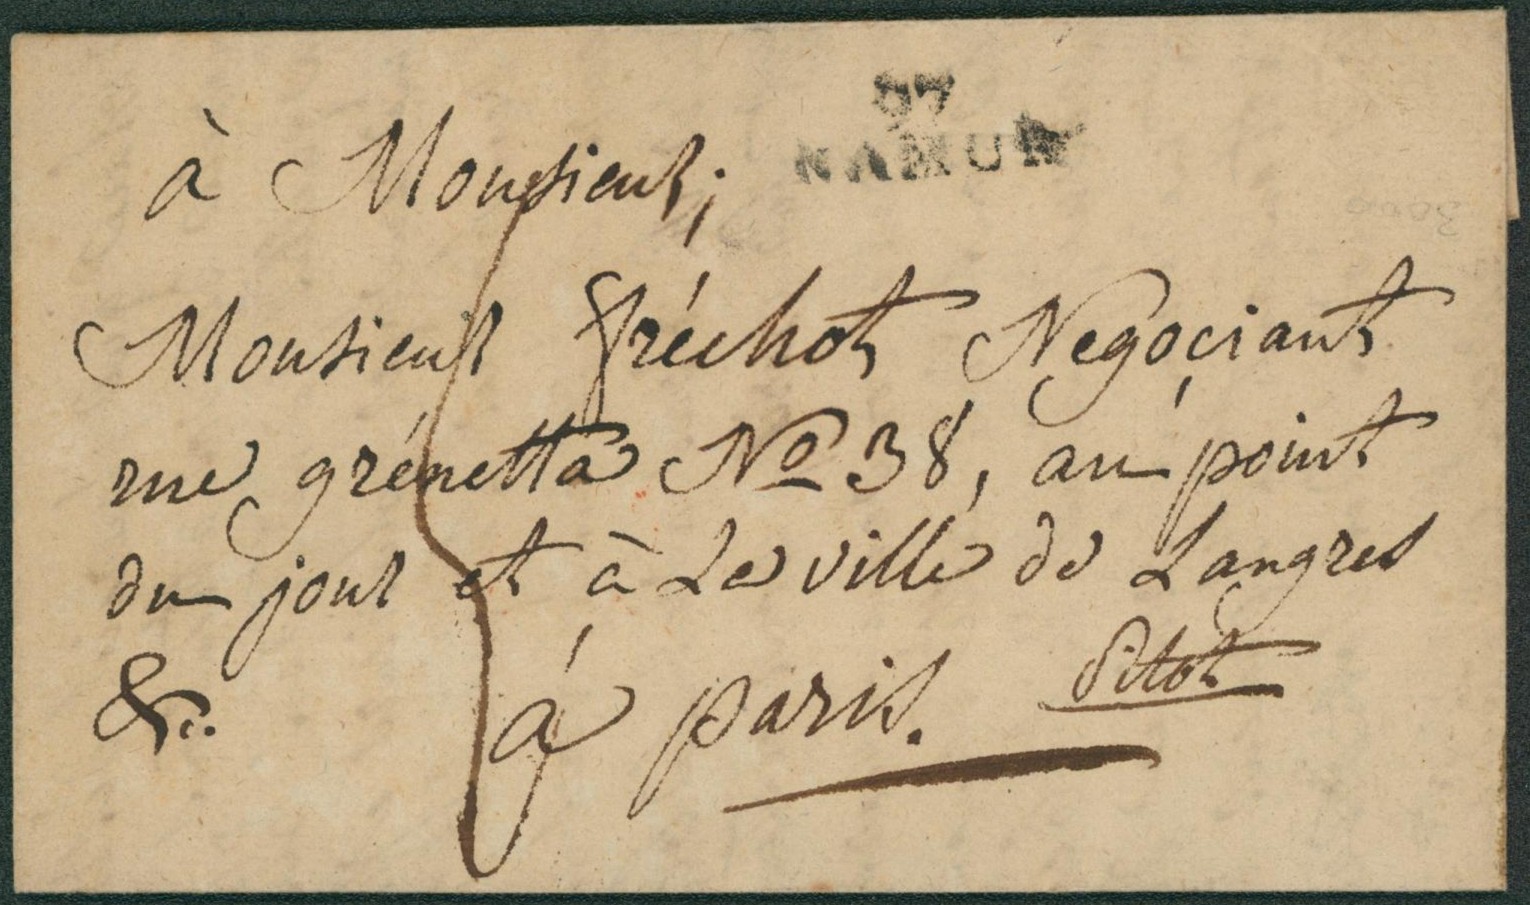 97
NAMUR
à Monsieur,
Monsieur fréchot Negociant
rue grénetta No 38, au point
du jour et à La ville de Langres
&c. à paris.
3000